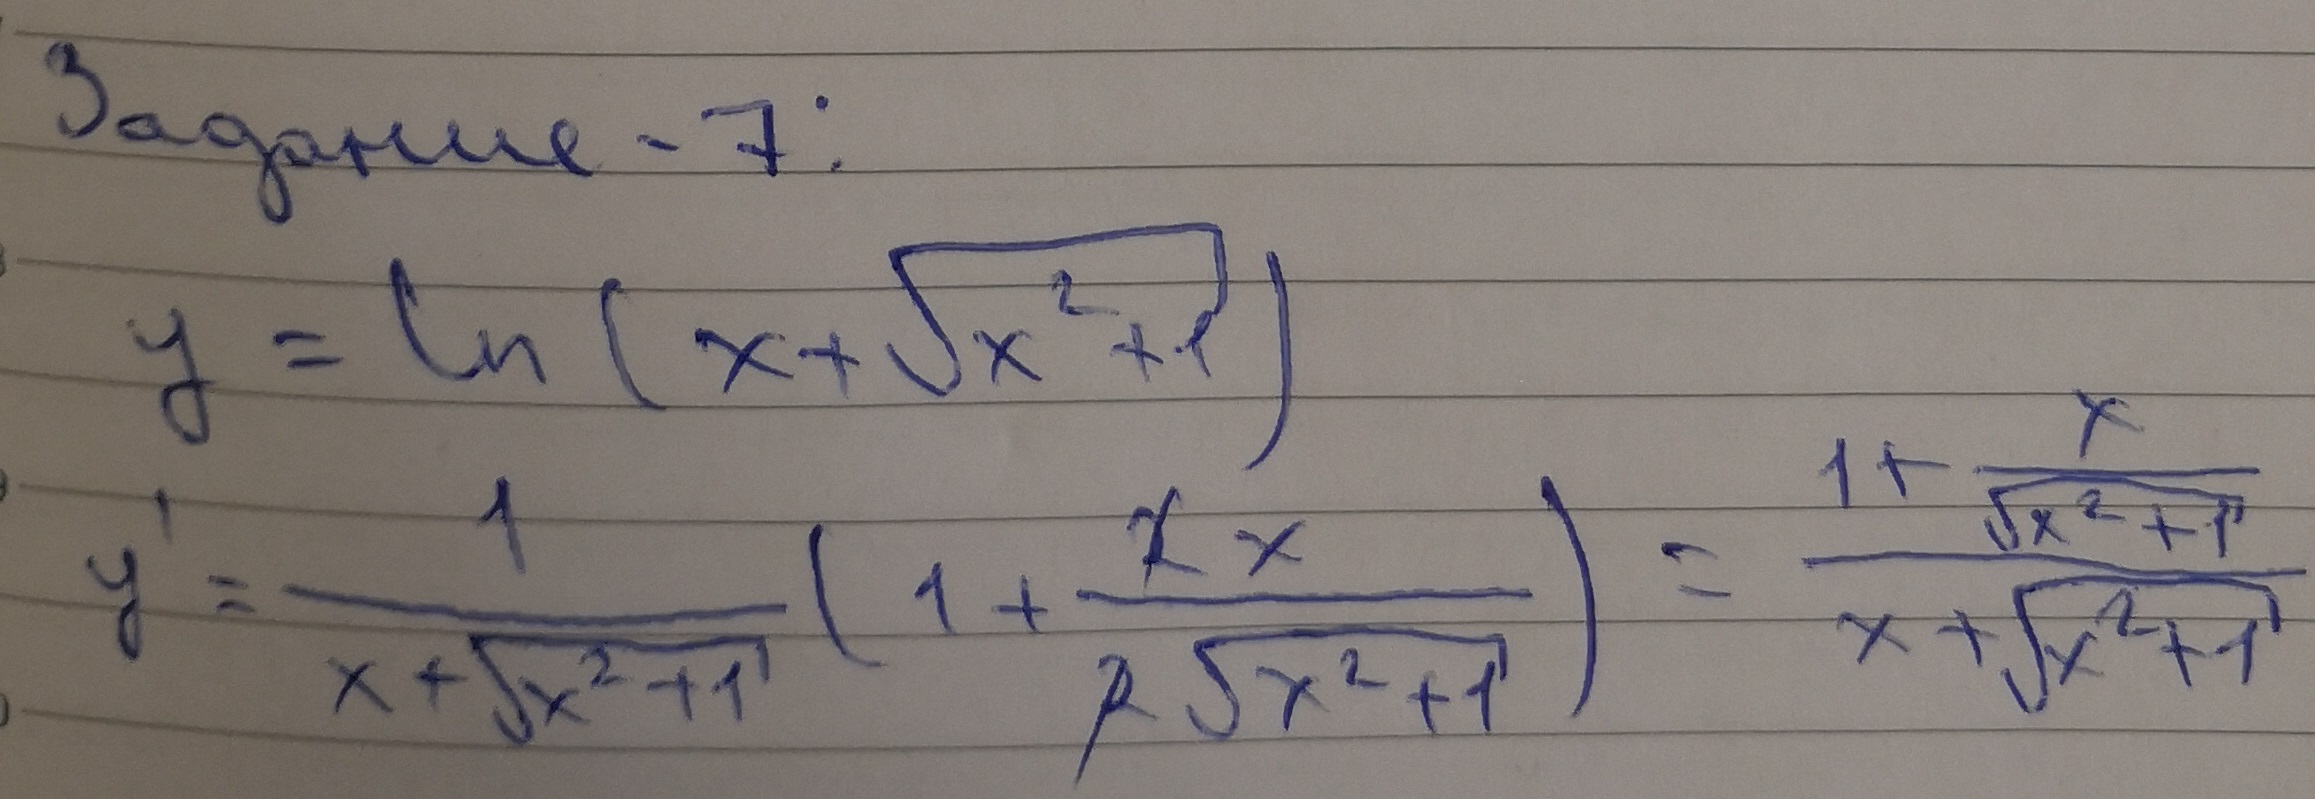 Задание - 7:
y = ln(x+√(x²+1))
y' = 1/(x+√(x²+1)) (1 + 2x/(2√(x²+1))) = (1 + x/√(x²+1))/(x+√(x²+1))